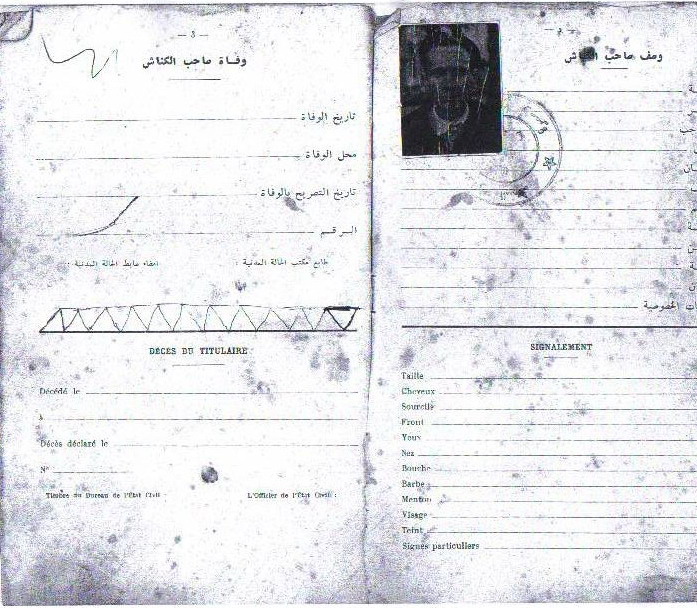 — 3 —
وفاة صاحب الكناش
تاريخ الوفاة
محل الوفاة
تاريخ التصريح بالوفاة
الرقم
طابع مكتب الحالة المدنية :
امضاء ضابط الحالة المدنية :
DÉCÈS DU TITULAIRE
Décédé le
à
Décès déclaré le
N°
Timbre du Bureau de l'État Civil :
L'Officier de l'État Civil :
وصف صاحب الكناش
الخصوصية
SIGNALEMENT
Taille
Cheveux
Sourcils
Front
Yeux
Nez
Bouche
Barbe
Menton
Visage
Teint
Signes particuliers